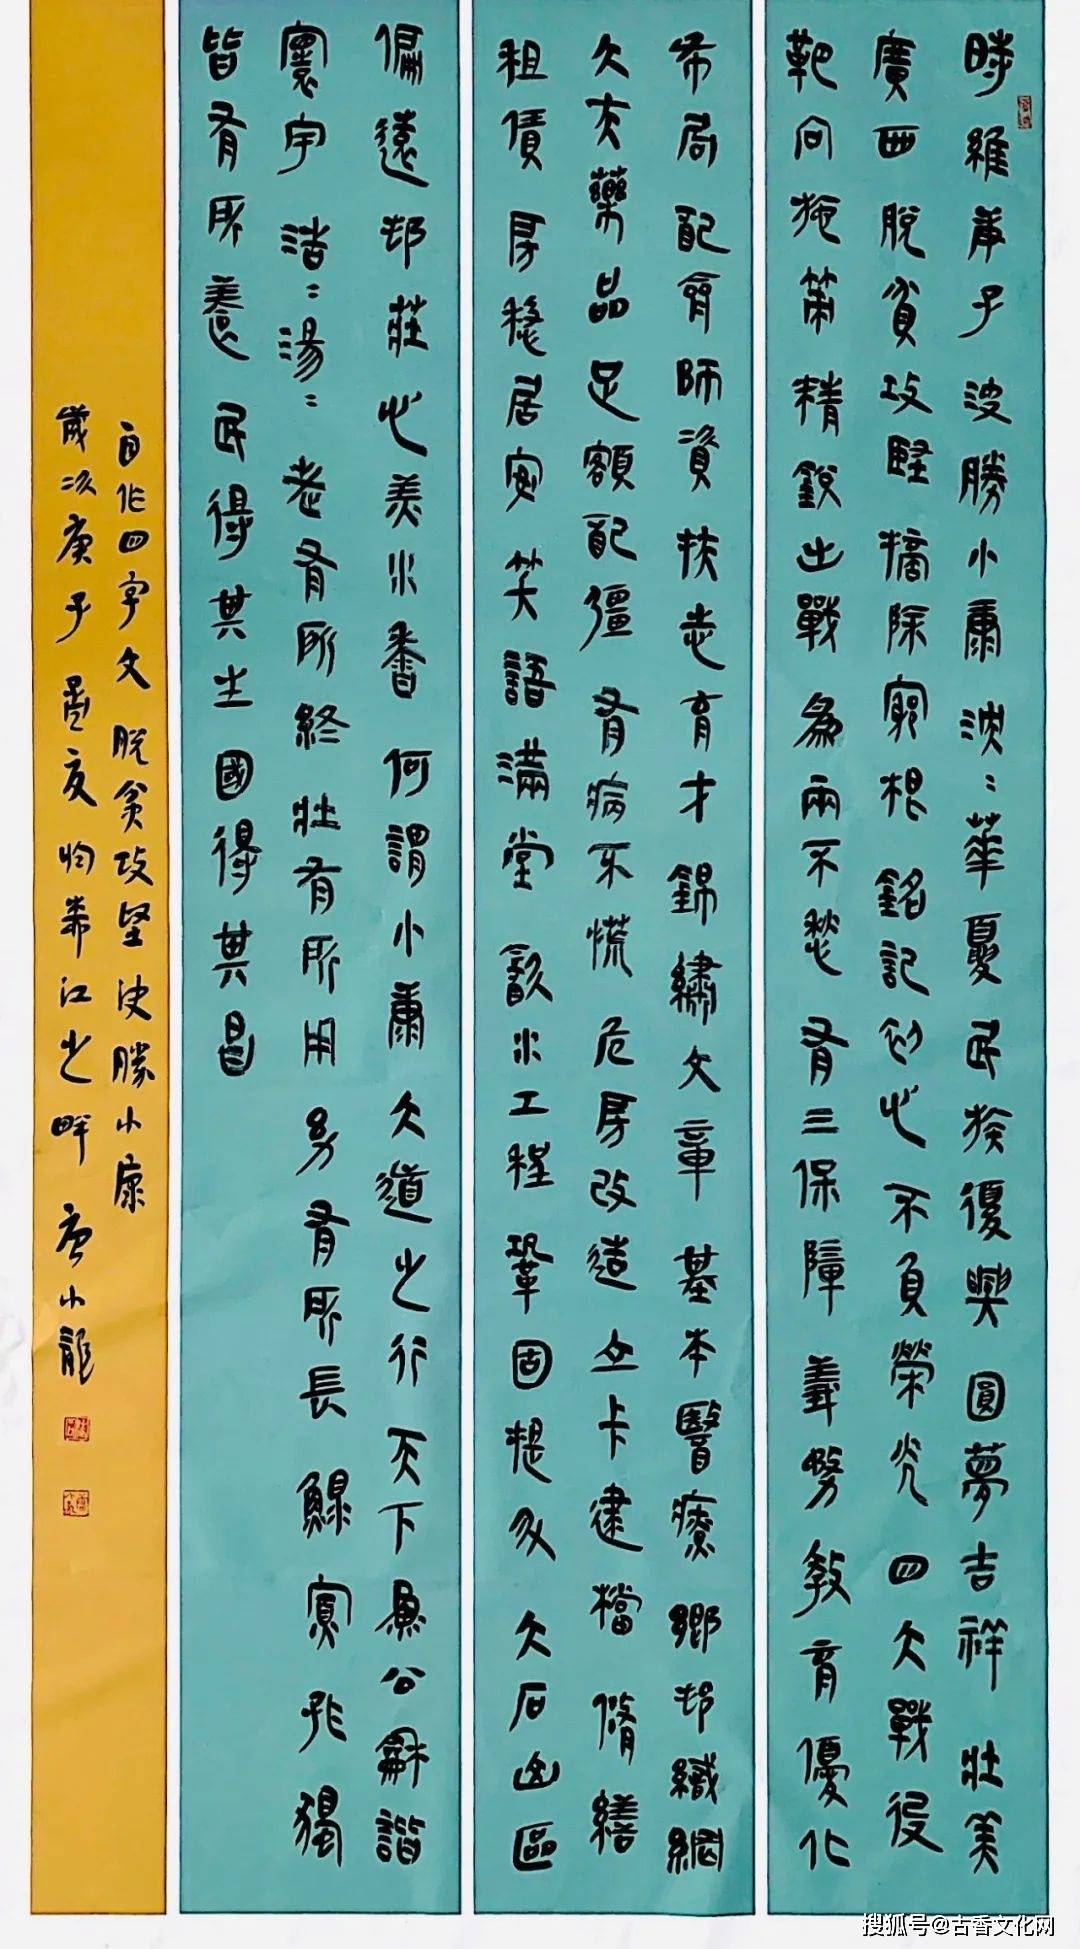 時維庚子決勝小康泱泱華夏民族復興圓夢吉祥壯美
廣西脫貧攻堅摘除窮根銘記初心不負榮光四大戰役
靶向施策精銳出戰為兩不愁有三保障義務教育優化
布局配齊師資扶志育才錦繡文章基本醫療鄉村織網
大夫藥品足額配彊有病不慌危房改造立卡建檔脩繕
租賃房穩居安笑語滿堂飲水工程鞏固提升大石山區
偏遠邨莊心美水香何謂小康大道之行天下為公龢諧
寰宇浩浩湯湯老有所終壯有所用幼有所長鰥寡孤獨
皆有所養民得其生國得其昌
自作四字文脫貧攻堅決勝小康
歲次庚子孟夏於黎江之畔唐小龍
搜狐号@古香文化网